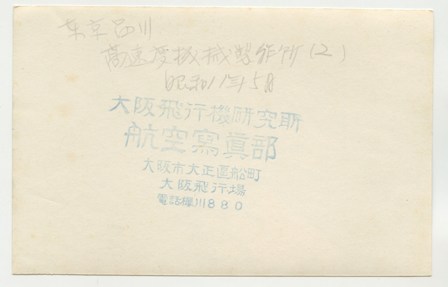 東京品川
高速度機械製作所(2)
昭和11年15日
大阪飛行機研究所
航空寫眞部
大阪市大正區船町
大阪飛行場
電話櫻川880